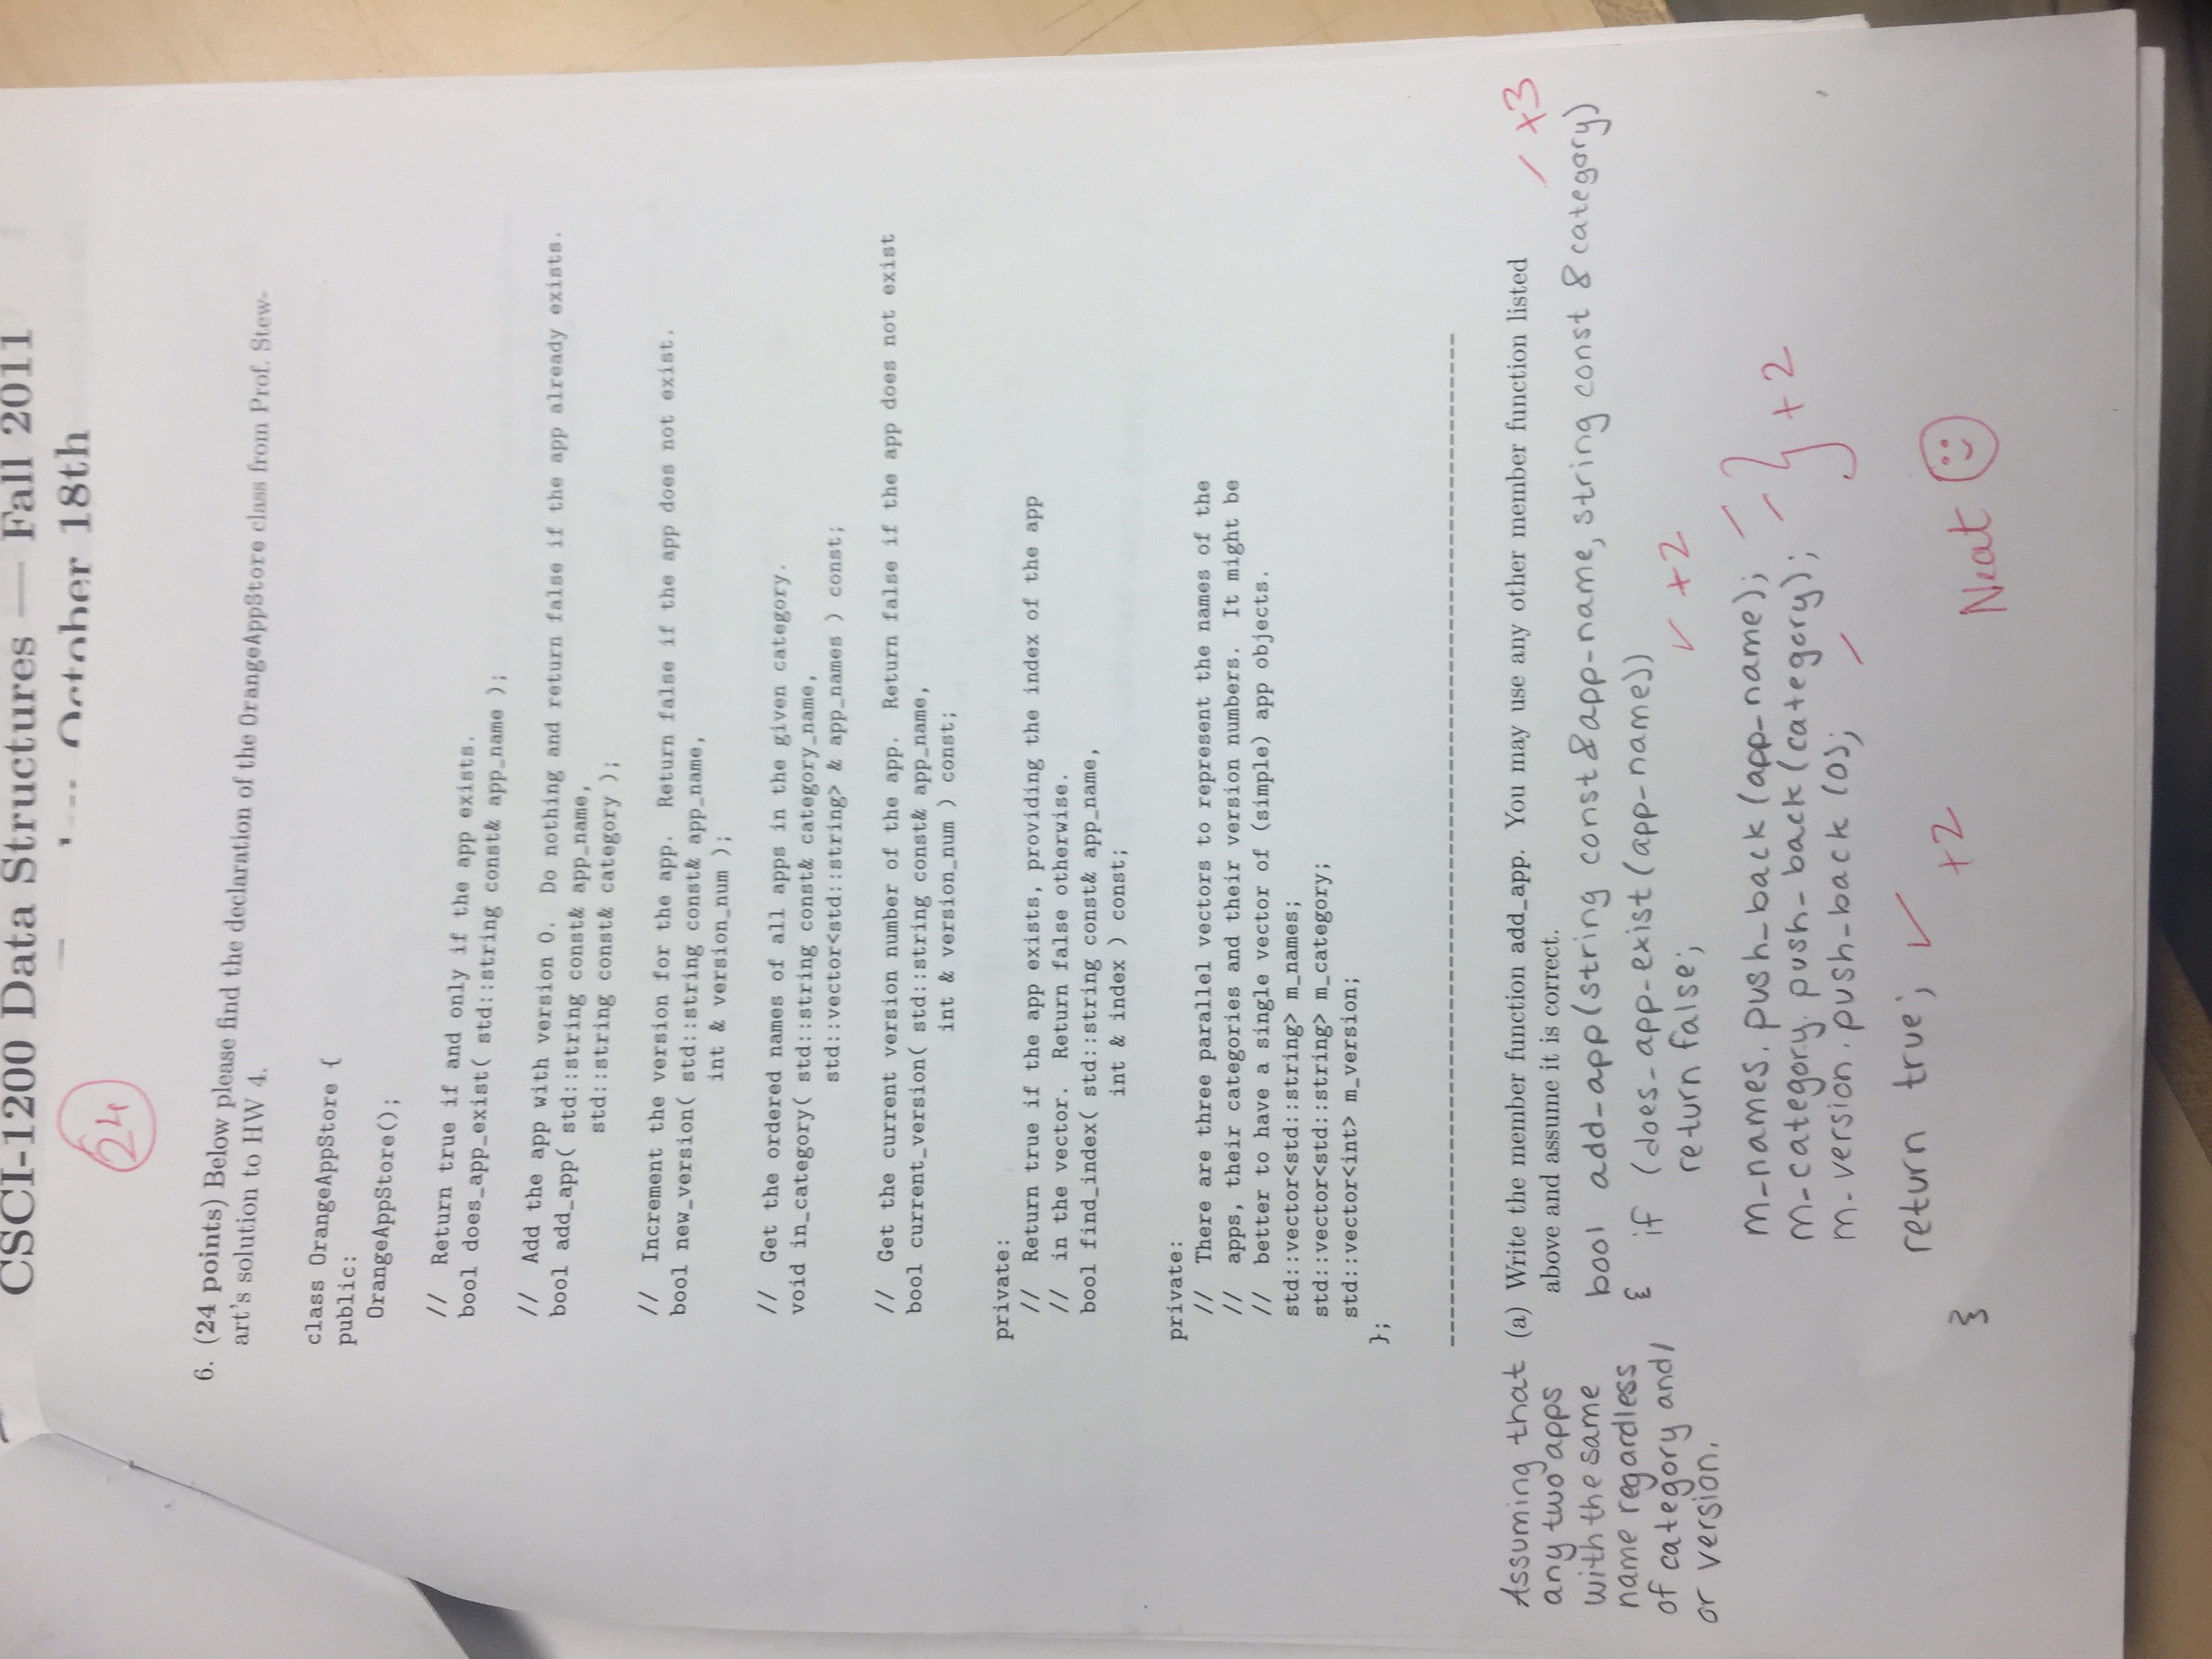 CSCI-1200 Data Structures — Fall 2011
October 18th
24
6. (24 points) Below please find the declaration of the OrangeAppStore class from Prof. Stew-
art's solution to HW 4.
class OrangeAppStore {
public:
OrangeAppStore();
// Return true if and only if the app exists.
bool does_app_exist( std::string const& app_name );
// Add the app with version 0. Do nothing and return false if the app already exists.
bool add_app( std::string const& app_name,
std::string const& category );
// Increment the version for the app. Return false if the app does not exist.
bool new_version( std::string const& app_name,
int & version_num );
// Get the ordered names of all apps in the given category.
void in_category( std::string const& category_name,
std::vector<std::string> & app_names ) const;
// Get the current version number of the app. Return false if the app does not exist
bool current_version( std::string const& app_name,
int & version_num ) const;
private:
// Return true if the app exists, providing the index of the app
// in the vector. Return false otherwise.
bool find_index( std::string const& app_name,
int & index ) const;
private:
// There are three parallel vectors to represent the names of the
// apps, their categories and their version numbers. It might be
// better to have a single vector of (simple) app objects.
std::vector<std::string> m_names;
std::vector<std::string> m_category;
std::vector<int> m_version;
};
(a) Write the member function add_app. You may use any other member function listed
above and assume it is correct.
Assuming that
any two apps
with the same
name regardless
of category and/
or version.
+3
bool add_app(string const &app_name, string const & category)
{ if (does_app_exist (app_name))
return false; ✓ +2
m_names. push_back (app_name);
m_category. push_back (category); } +2
m_version. push_back (0);
return true; ✓
+2
}
Neat